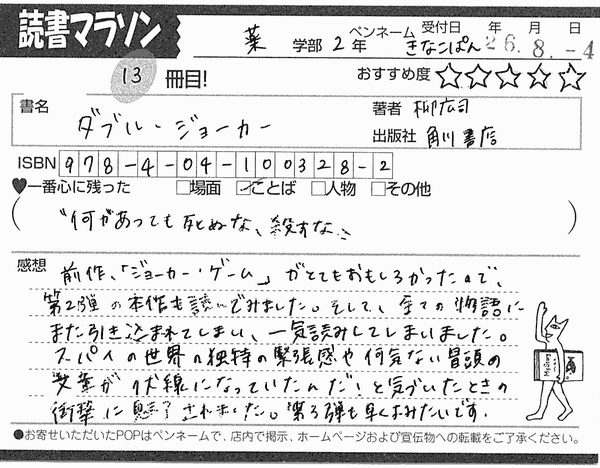 読書マラソン
薬 学部 2年 ペンネーム きなこぱん 受付日 年 月 日 26.8.-4
13 冊目! おすすめ度 ☆☆☆☆☆
書名 ダブル・ジョーカー
著者 柳広司
出版社 角川書店
ISBN 978-4-04-100328-2
♥一番心に残った □場面 ☑ことば □人物 □その他
"何があっても死ぬな、殺すな"
感想 前作、「ジョーカー・ゲーム」がとてもおもしろかったので、
第2弾の本作も読んでみました。そして、全ての物語に
また引き込まれてしまい、一気読みしてしまいました。
スパイの世界の独特の緊張感や何気ない冒頭の
文章が伏線になっていたんだ!と気づいたときの
衝撃に魅了されました。第3弾も早くよみたいです。
●お寄せいただいたPOPはペンネームで、店内で掲示、ホームページおよび宣伝物への転載をご了承ください。